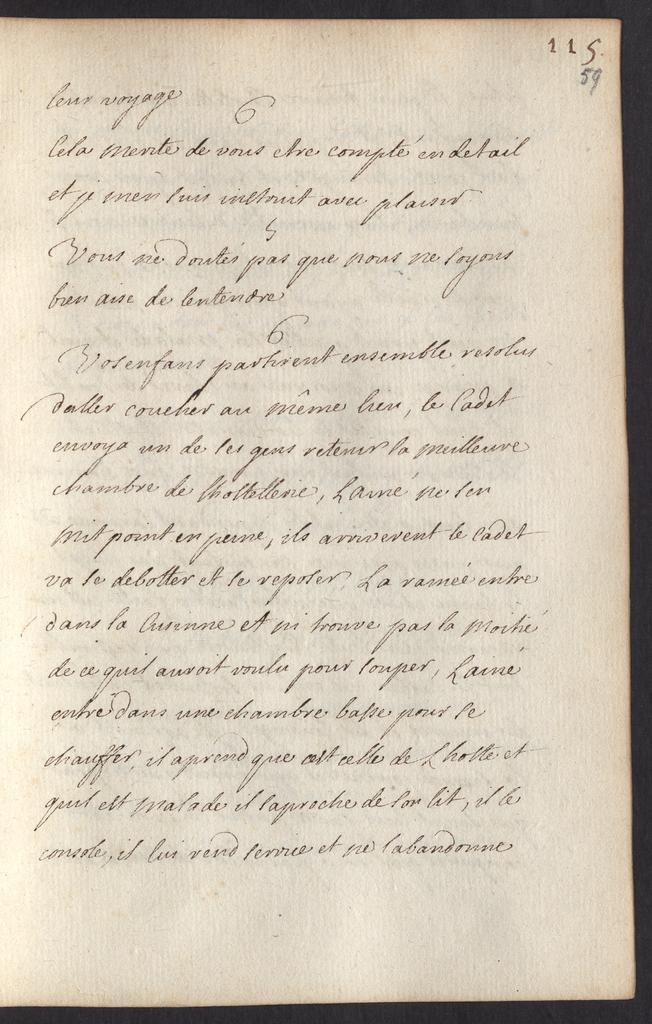 115.
59
leur voyage
6
Cela merite de vous etre compté en detail
et je men suis instruit avec plaisir
5
Vous ne doutés pas que nous ne soyons
bien aise de lentendre
6
Vos enfans partirent ensemble resolus
daller coucher au même lieu, le Cadet
envoya un de ses gens retenir la meilleure
chambre de lhostellerie, Lainé ne sen
mit point en peine, ils arriverent le Cadet
va se debotter et se reposer. La ramée entre
dans la Cusinne et ni trouve pas la moitié
de ce quil auroit voulu pour souper, Lainé
entre dans une chambre basse pour se
chauffer, il aprend que cest celle de Lhoste et
quil est malade il saproche de son lit, il le
console, il lui rend service et ne labandonne